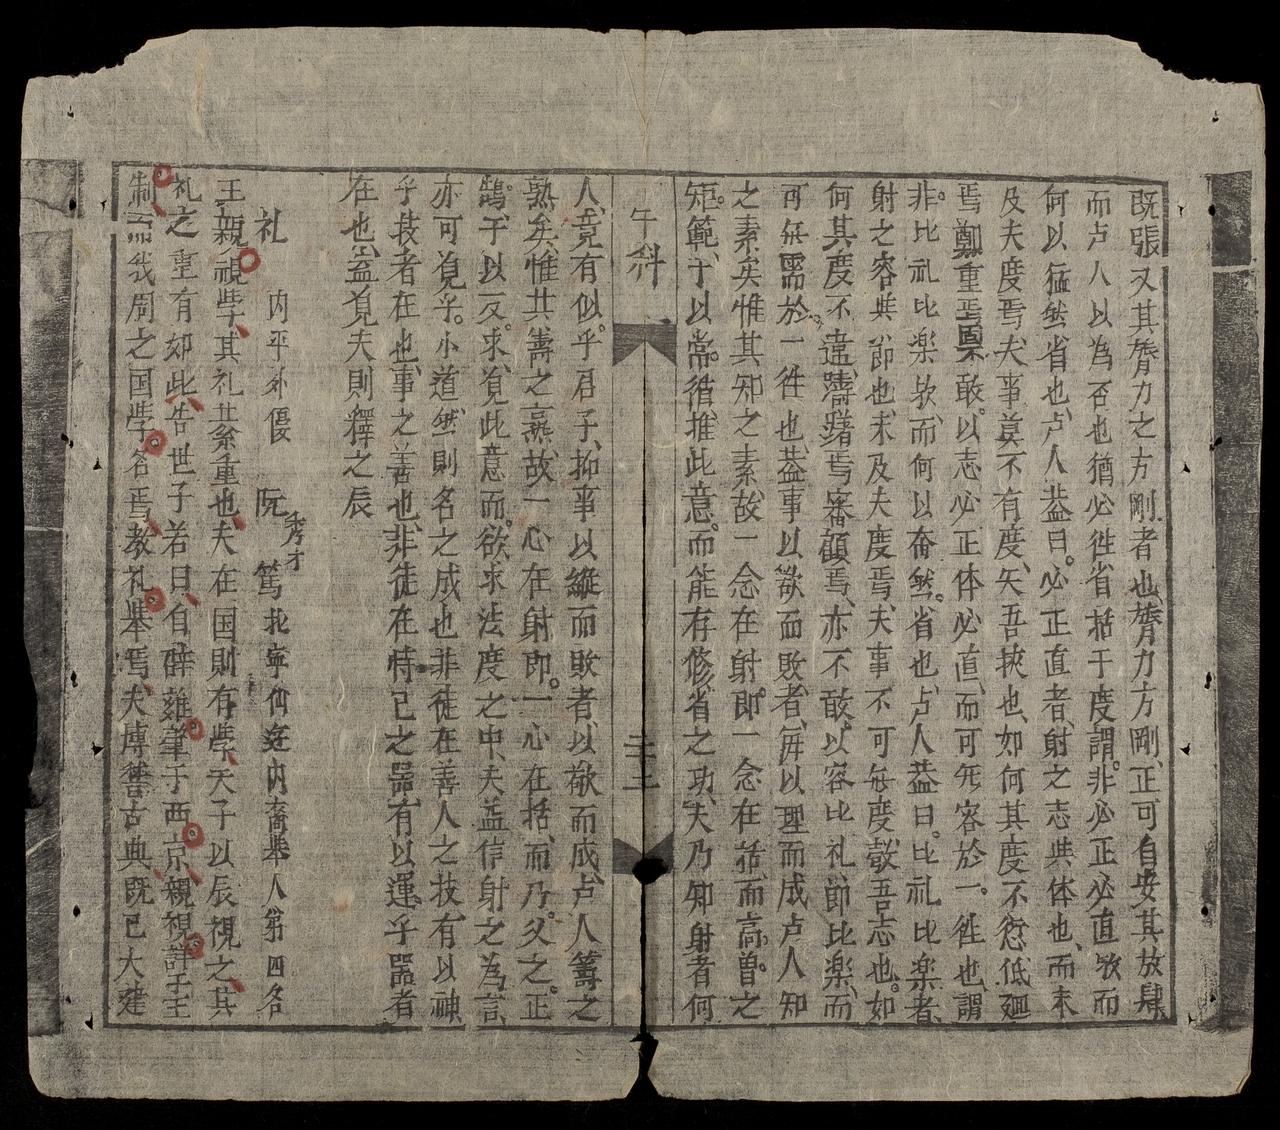 既張又其膂力之方剛者也膂力方剛正可自安其放肆
而卢人以為否也猶必徃省括于度謂非必正必直欤而
何以猛然省也卢人葢曰必正直者射之志与体也而未
及夫度焉夫事莫不有度矢吾挾也如何其度不愆低廻
焉鄭重焉奚敢以志必正体必直而可无容於一徃也謂
非比礼比楽欤而何以奮然省也卢人葢曰比礼比楽者
射之容与節也未及夫度焉夫事不可无度彀吾志也如
何其度不違躊躇焉審顧焉亦不敢以容比礼節比楽而
可无需於一徃也葢事以欲而敗者毎以理而成卢人知
之素矣惟其知之素故一念在射即一念在括而高曽之
矩範于以常循推此意而能存修省之功夫乃知射者何
午科
三十二
人竟有似乎君子抑事以縱而敗者以敬而成卢人籌之
熟矣惟其籌之熟故一心在射即一心在括而乃父之正
鵠于以反求覓此意而欲求法度之中夫益信射之為言
亦可覓乎小道然則名之成也非徒在善人之技有以神
乎技者在也事之善也非徒在恃己之器有以運乎器者
在也盍覓夫則釋之辰
礼 内平外優 阮秀才 篤北寧仙逰内裔举人第四名
王親視学其礼綦重也夫在国則有学天子以辰視之其
礼之重有如此告世子若曰自辟雍肇于西京親視詳于王
制而我周之国学名焉教礼举焉夫博籌古典既已大建